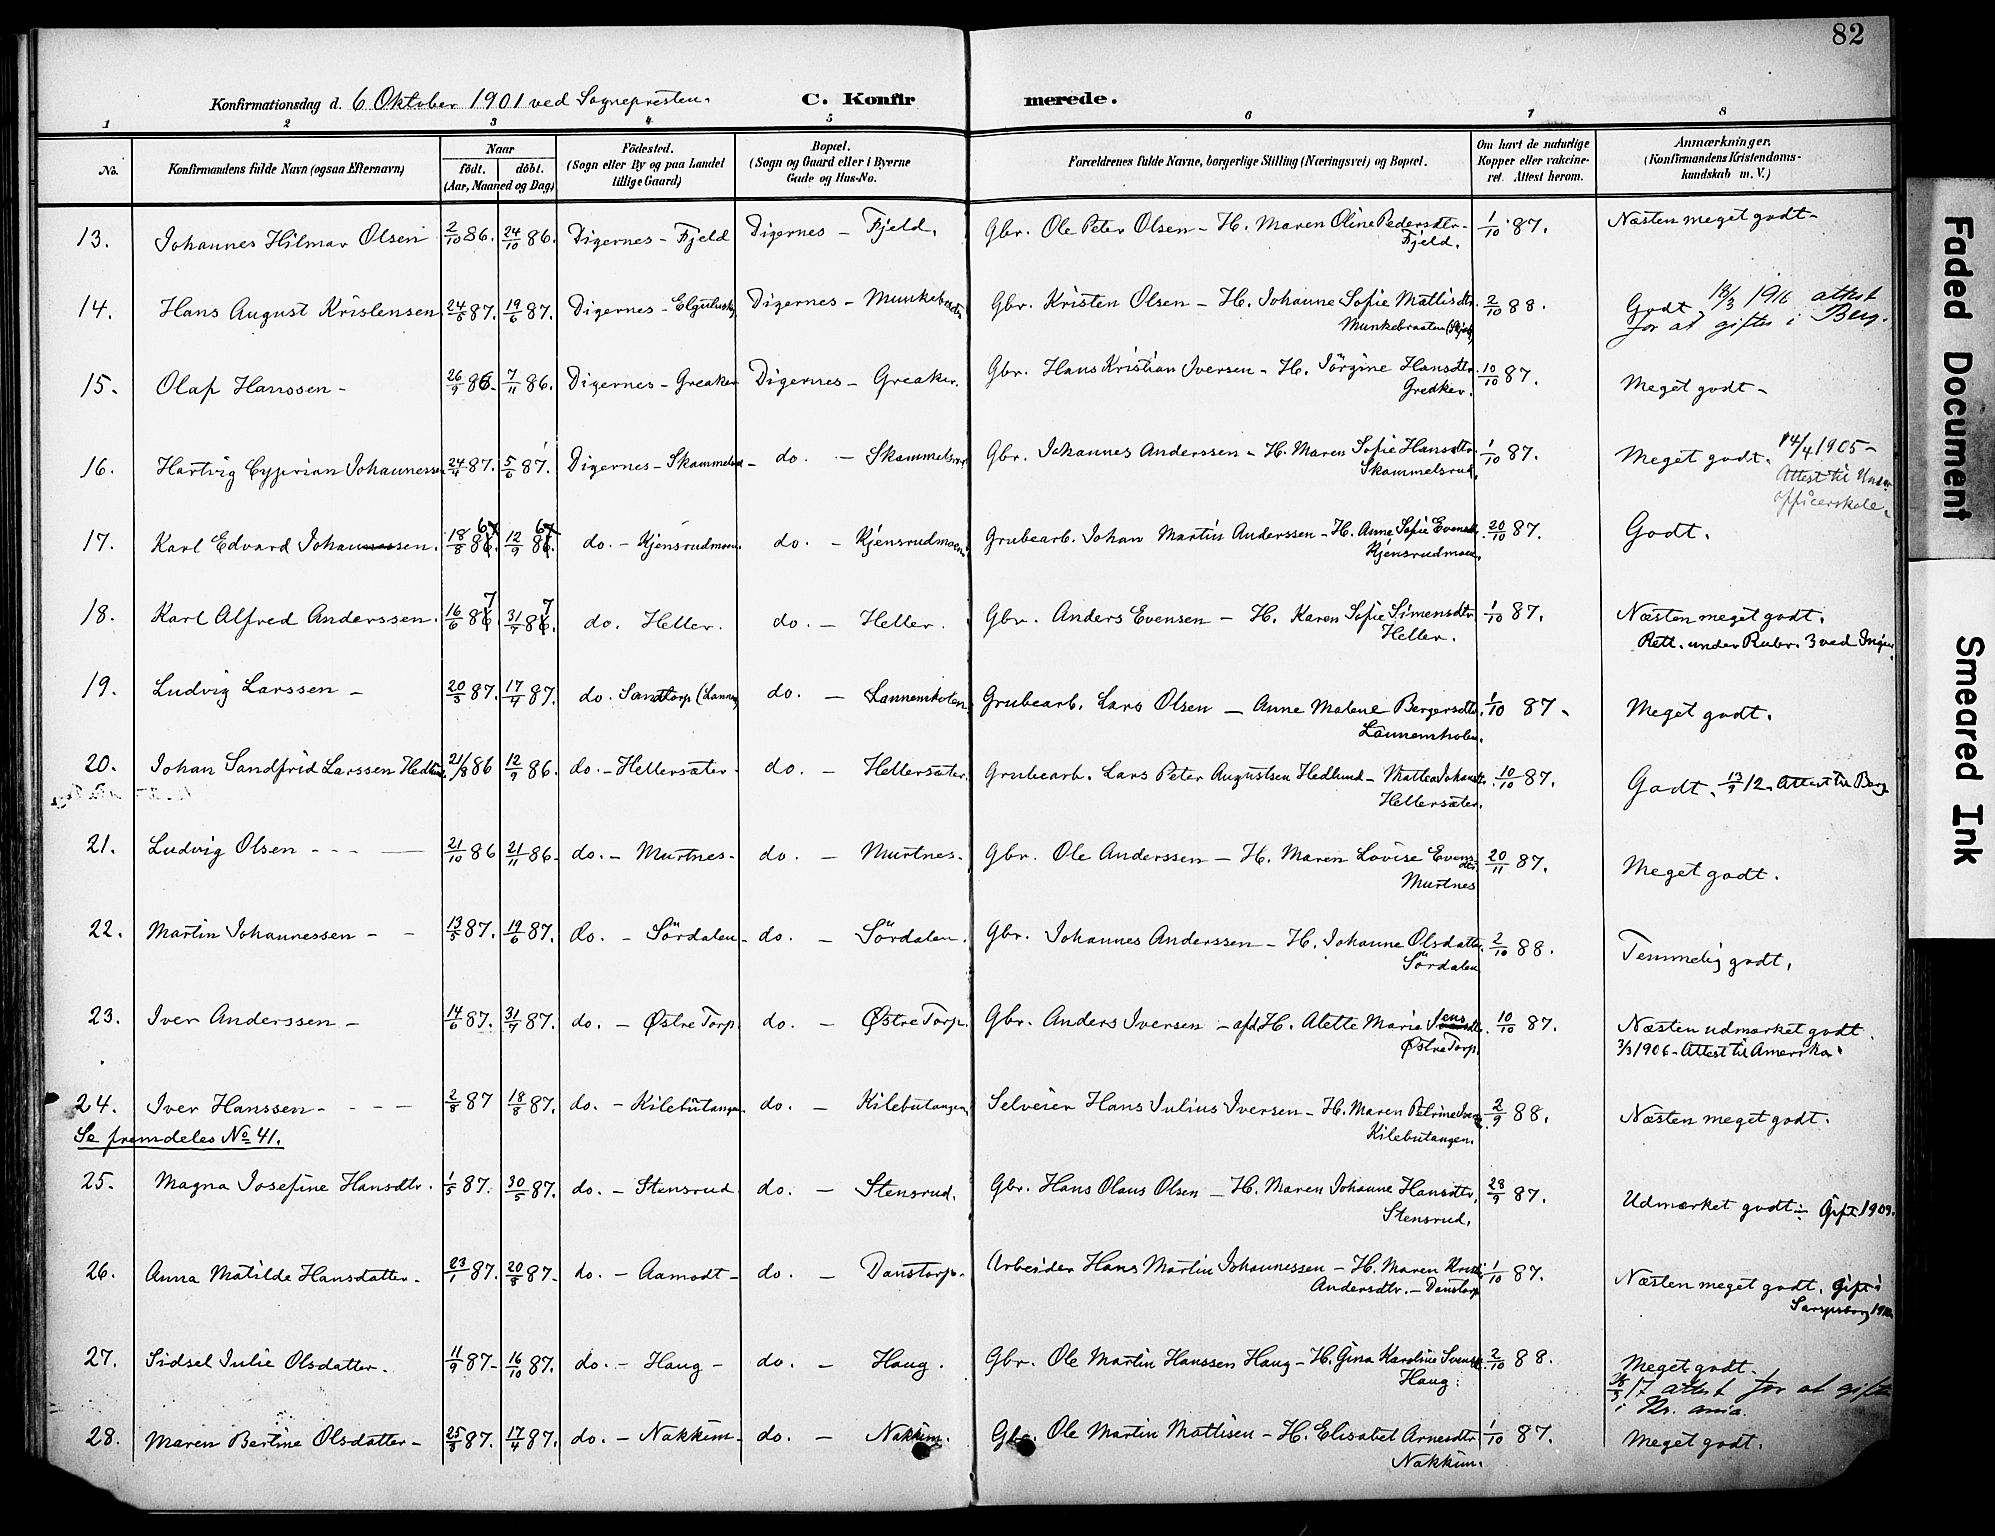 82
Konfirmationsdag d. 6 Oktober 1901 ved Sognepresten. C. Konfirmerede.
1 2 3 4. 5 6 7 8
No. Konfirmandens fulde Navn (ogsaa Efternavn) Naar født. døbt. (Aar, Maaned og Dag) Fødested. (Sogn eller By og paa Landet tillige Gaard) Bopæl. (Sogn og Gaard eller i Byerne Gade og Hus-No. Forældrenes fulde Navne, borgerlige Stilling (Næringsvei) og Bopæl. Om havt de naturlige Kopper eller vakcineret. Attest herom. Anmærkninger. (Konfirmandens Kristendomskundskab m.V.)
13. Johannes Hilmar Olsen 2/10 86. 24/10 86. Digernes - Fjeld Digernes - Fjeld. Gbr. Ole Peter Olsen - H. Maren Oline Pedersdtr. 1/10 87. Næsten meget godt -
Fjeld.
14. Hans August Kristensen 24/5 87. 19/6 87. Digernes - Digernes - Gbr. Kristen Olsen - H. Johanne Sofie Mattisdtr. 2/10 88. Godt. 18/3 1916 attest
Munkebraaten for at giftes i Berg.
15. Olaf Hanssen - 26/9 86. 7/11 86. Digernes - Greaker Digernes - Greaker. Gbr. Hans Kristian Iversen - H. Jörgine Hansdtr. 10/10 87. Meget godt -
Greaker.
16. Hartvig Cyprian Johannessen 24/4 87. 5/6 87. Digernes - Skammelsrud - do. - Skammelsrud Gbr. Johannes Anderssen - H. Maren Sofie Hansdtr. 1/10 87. Meget godt. 14/4 1905 -
Skammelsrud. Attest til Under
officerskole.
17. Karl Edvard Johansen. 18/8 86. 12/9 86. do. - Kjensrudmoen. do. - Kjensrudmoen. Grubearb. Johan Martin Anderssen - H. Anne Sofie Evensdtr. 20/10 87. Godt.
Kjensrudmoen.
18. Karl Alfred Anderssen. 16/6 87. 31/7 87. do. Heller. do. - Heller. Gbr. Anders Evensen - H. Karen Sofie Simensdtr. 1/10 87. Næsten meget godt.
Heller. Rett. under Rubr. 3 ved
19. Ludvig Larssen - 20/3 87. 17/4 87. do. Sandtorp do. - Lannemholen. Grubearb. Lars Olsen - Anne Malene Bergersdtr. 1/10 87 - Meget godt.
Lannemholen.
20. Johan Sandfrid Larssen Hedlund. 21/8 86 12/9 86. do. - Hellersæter. do. - Hellersæter. Grubearb. Lars Peter Augustsen Hedlund - Mattea Johansdtr. 10/10 87. Godt. 13/9 12. Attest til Berg
Hellersæter.
21. Ludvig Olsen - - - 21/10 86 21/11 86. do. - Murtnes. do. - Murtnes. Gbr. Ole Anderssen - H. Maren Lovise Evensdtr. 20/11 87. Meget godt.
Murtnes
22. Martin Johannessen - - 13/5 87. 19/6 87. do. - Sördalen - do. - Sördalen. Gbr. Johannes Anderssen - H. Johanne Olsdatter. 2/10 88. Temmelig godt.
Sördalen
23. Iver Anderssen - 14/6 87. 31/7 87. do. - Østre Torp. do. - Østre Torp. Gbr. Anders Iversen - afd H. Alette Marie 10/10 87. Næsten udmærket godt.
Østre Torp. 3/3 1906 - Attest til Amerika.
24. Iver Hanssen - - - - 2/8 87 18/8 87. do. - Kilebutangen. do. - Kilebutangen Selveier Hans Julius Iversen - H. Maren Petrine 2/9 88. Næsten meget godt.
Se fremdeles No 41. Kilebutangen.
25. Magna Josefine Hansdtr. 1/5 87. 30/5 87. do. - Stensrud do. - Stensrud. Gbr. Hans Olaus Olsen - H. Maren Johanne Hansdtr. 28/9 87. Udmærket godt. Gift 1909.
Stensrud.
26. Anna Matilde Hansdatter. 23/1 87. 20/3 87. do. - Aamodt - do. - Danstorp. Arbeider Hans Martin Johannessen - H. Maren 1/10 87. Næsten meget godt. Gift i
Andersdtr. - Danstorp Sarpsborg
27. Sidsel Julie Olsdatter. 11/9 87 - 16/10 87. do. - Haug - do. - Haug. Gbr. Ole Martin Hanssen Haug - H. Gina Karoline 2/10 88. Meget godt.
Haug. 17 attest for at gifte
i Kr.ania.
28. Maren Bertine Olsdatter - 25/3 87. 17/4 87. do. - Nakkim. do. - Nakkim. Gbr. Ole Martin Mattisen - H. Elisabet Arnesdtr. 1/10 87. Meget godt.
Nakkim.
Faded Document
Smeared Ink